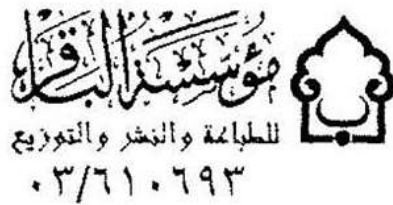 مؤسسة الباقر
للطباعة والنشر والتوزيع
٠٣/٦١٠٦٩٣